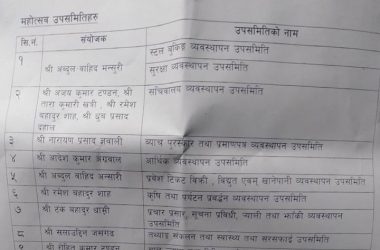 महोत्सव उपसमितिहरु
सि.नं. संयोजक उपसमितिको नाम
स्टल बुकिङ्ग व्यवस्थापन उपसमिति
१ श्री अब्दुल वाहिद मन्सुरी सुरक्षा व्यवस्थापन उपसमिति
२ श्री अजय कुमार टण्डन, श्री सचिवालय व्यवस्थापन उपसमिति
तारा कुमारी खत्री , श्री रमेश
बहादुर शाह, श्री ध्रुव प्रसाद
दाहाल
३ श्री नारायण प्रसाद ज्ञवाली ब्याच पुरस्कार तथा प्रमाणपत्र व्यवस्थापन उपसमिति
४ श्री आदेश कुमार अग्रवाल आर्थिक व्यवस्थापन उपसमिति
५ श्री अब्दुल वाहिद अन्सारी प्रवेश टिकट बिक्री , विद्युत एवम् खानेपानी व्यवस्थापन उपसमिति
६ श्री रमेश बहादुर शाह कृषि तथा पर्यटन प्रबर्द्धन व्यवस्थापन उपसमिति
७ श्री टेक बहादुर थासी प्रचार प्रसार, सूचना प्रविधी, र्‍याली तथा झाँकी व्यवस्थापन
उपसमिति
८ श्री तथ्याङ्क संकलन तथा स्वास्थ्य तथा सरसफाई उपसमिति
श्री रोहित कुमार टण्डन